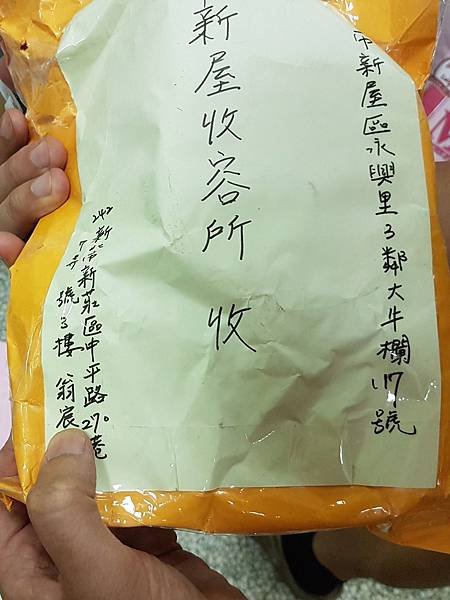 市新屋區永興里3鄰大牛欄117號
新屋收容所 收
242新北市新莊區中平路270巷
7弄 號3樓 翁宸